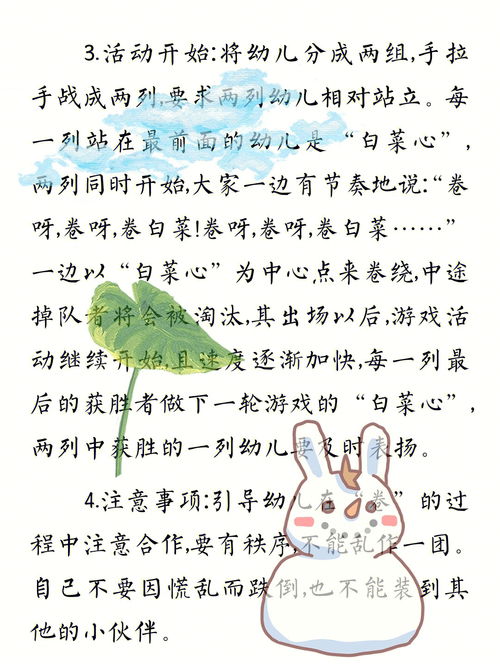 3.活动开始:将幼儿分成两组,手拉
手战成两列,要求两列幼儿相对站立。每
一列站在最前面的幼儿是“白菜心”,
两列同时开始,大家一边有节奏地说:“卷
呀,卷呀,卷白菜!卷呀,卷呀,卷白菜……”
一边以“白菜心”为中心点来卷绕,中途
掉队者将会被淘汰,其出场以后,游戏活
动继续开始,且速度逐渐加快,每一列最
后的获胜者做下一轮游戏的“白菜心”,
两列中获胜的一列幼儿要及时表扬。
4.注意事项:引导幼儿在“卷”的过
程中注意合作,要有秩序,不能乱作一团。
自己不要因慌乱而跌倒,也不能装到其
他的小伙伴。